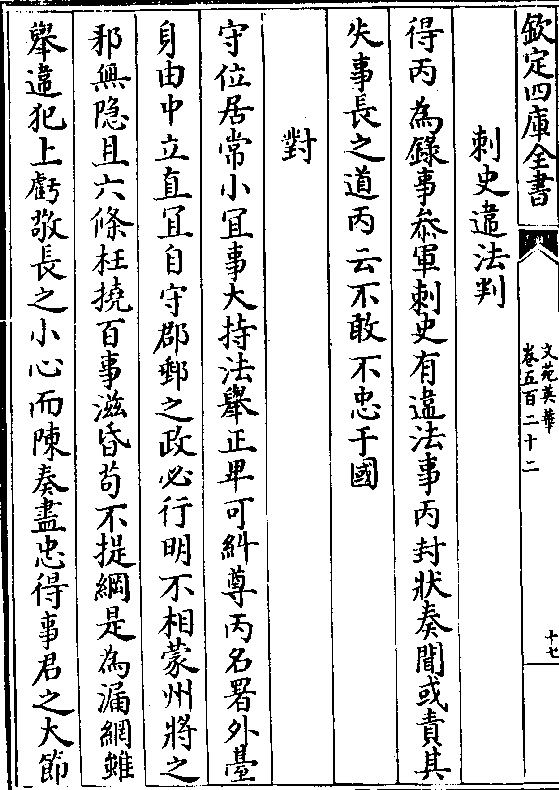 欽定四庫全書
文苑英華
卷五百二十二
十七
刺史違法判
得丙為録事叅軍刺史有違法事丙封狀奏聞或責其
失事長之道丙云不敢不忠于國
對
守位居常小冝事大持法舉正卑可糾尊丙名署外臺
身由中立直冝自守郡郵之政必行明不相蒙州將之
邪無隐且六條枉撓百事滋昏茍不提綱是為漏網雖
舉違犯上虧敬長之小心而陳奏盡忠得事君之大節